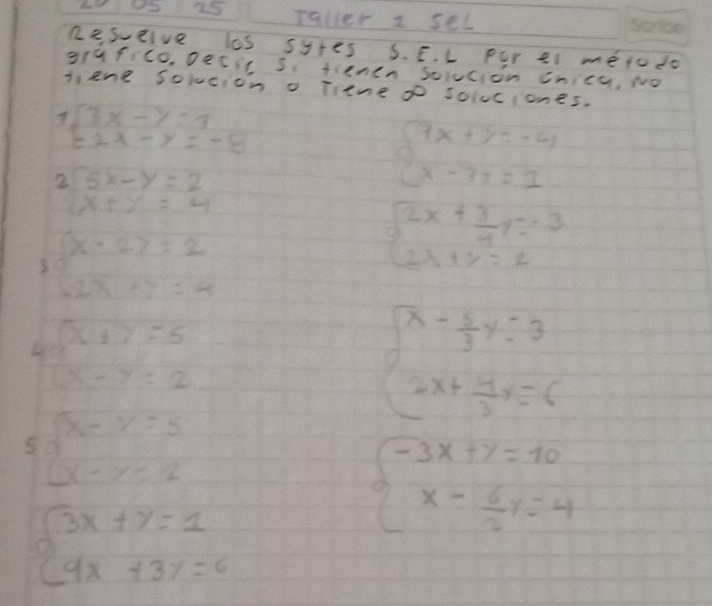 20 05 25
Taller 1 SEL
Scribe
Resuelve los sytes S.E.L por el método
gráfico. Decir si tienen solucion única, No
tiene solución o Tiene ∞ soluciones.
1 3x - y = 1
-2x - y = -8
2 5x - y = 2
x + y = 4
3 x - 2y = 2
2x + y = 4
4 x + y = 5
x - y = 2
5 x - y = 5
x - y = 2
3x + y = 1
9x + 3y = 6
7x + y = -4
x - 7y = 1
2x + 3/4 y = -3
2x + y = 2
x - 5/3 y = 3
2x + 4/3 y = 6
-3x + y = 10
x - 6/2 y = 4